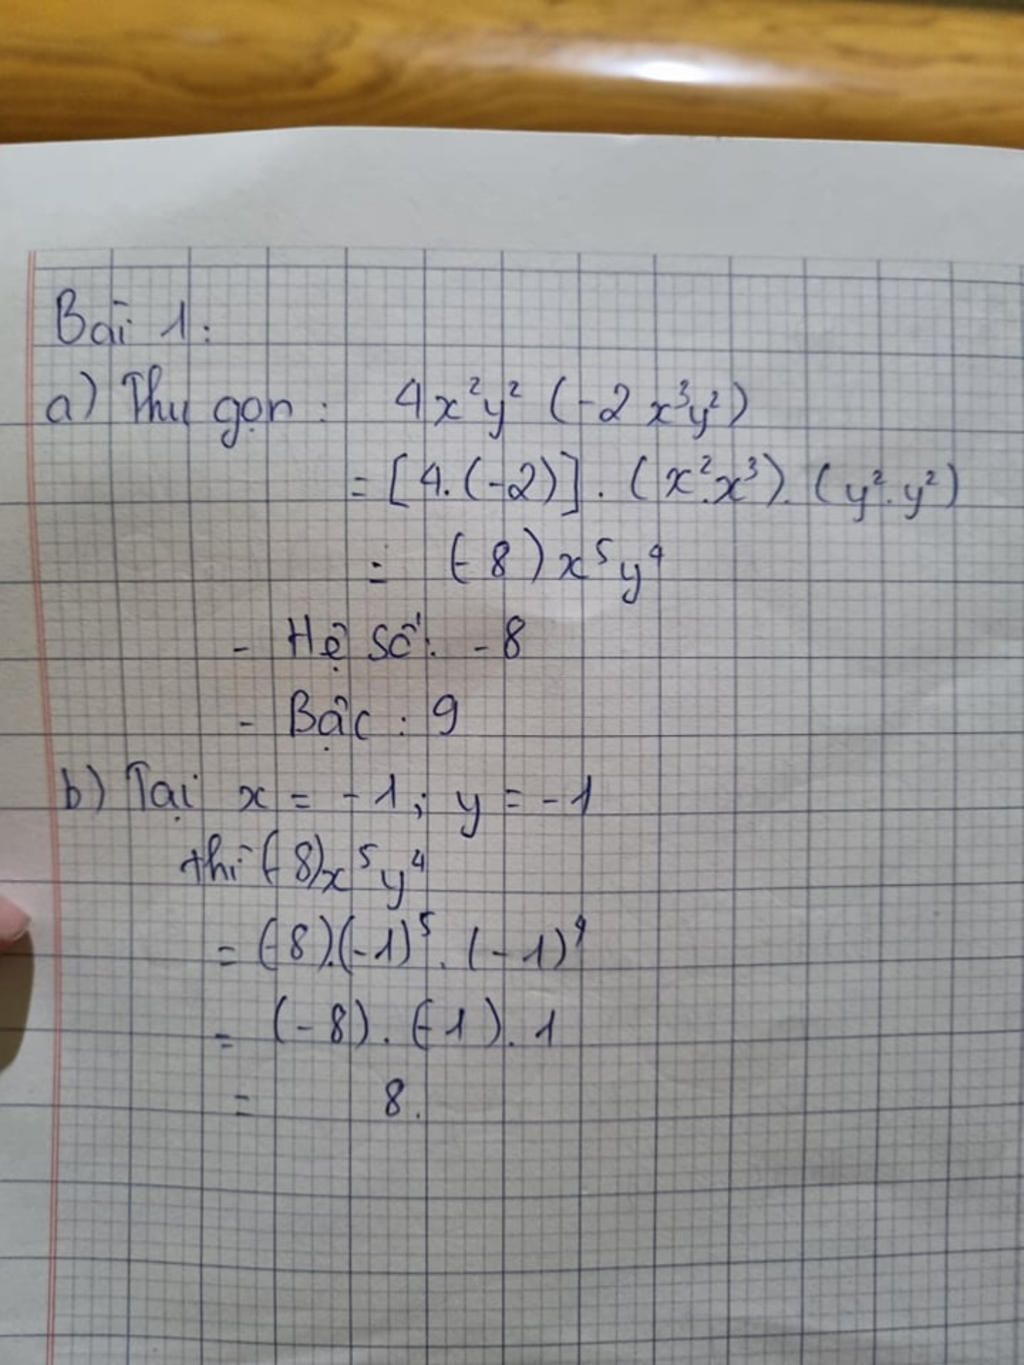 Bài 1:
a) Thu gọn: 4x²y² (-2x³y²)
= [4.(-2)].(x².x³).(y².y²)
= (-8)x⁵y⁴
- Hệ số: -8
- Bậc: 9
b) Tại x = -1; y = -1
thì (-8)x⁵y⁴
= (-8).(-1)⁵.(-1)⁴
= (-8).(-1).1
= 8.